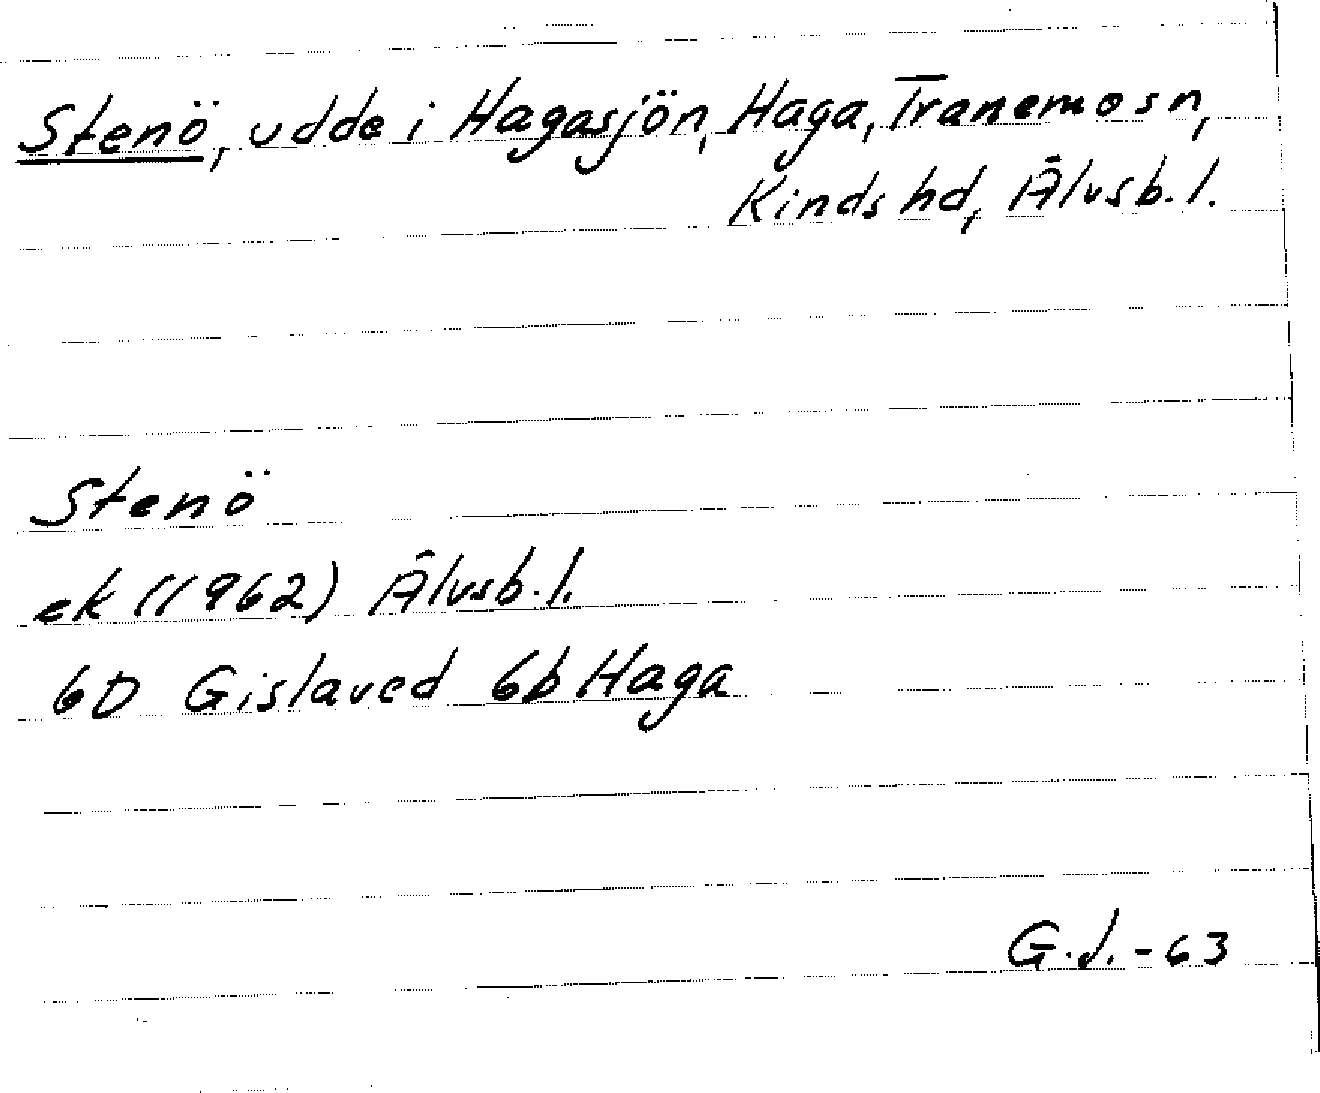 Stenö, udde i Hagasjön, Haga, Tranemo sn,
Kinds hd, Älvsb. l.
Stenö
ek (1962) Älvsb. l.
6D Gislaved 6b Haga
G.J. -63